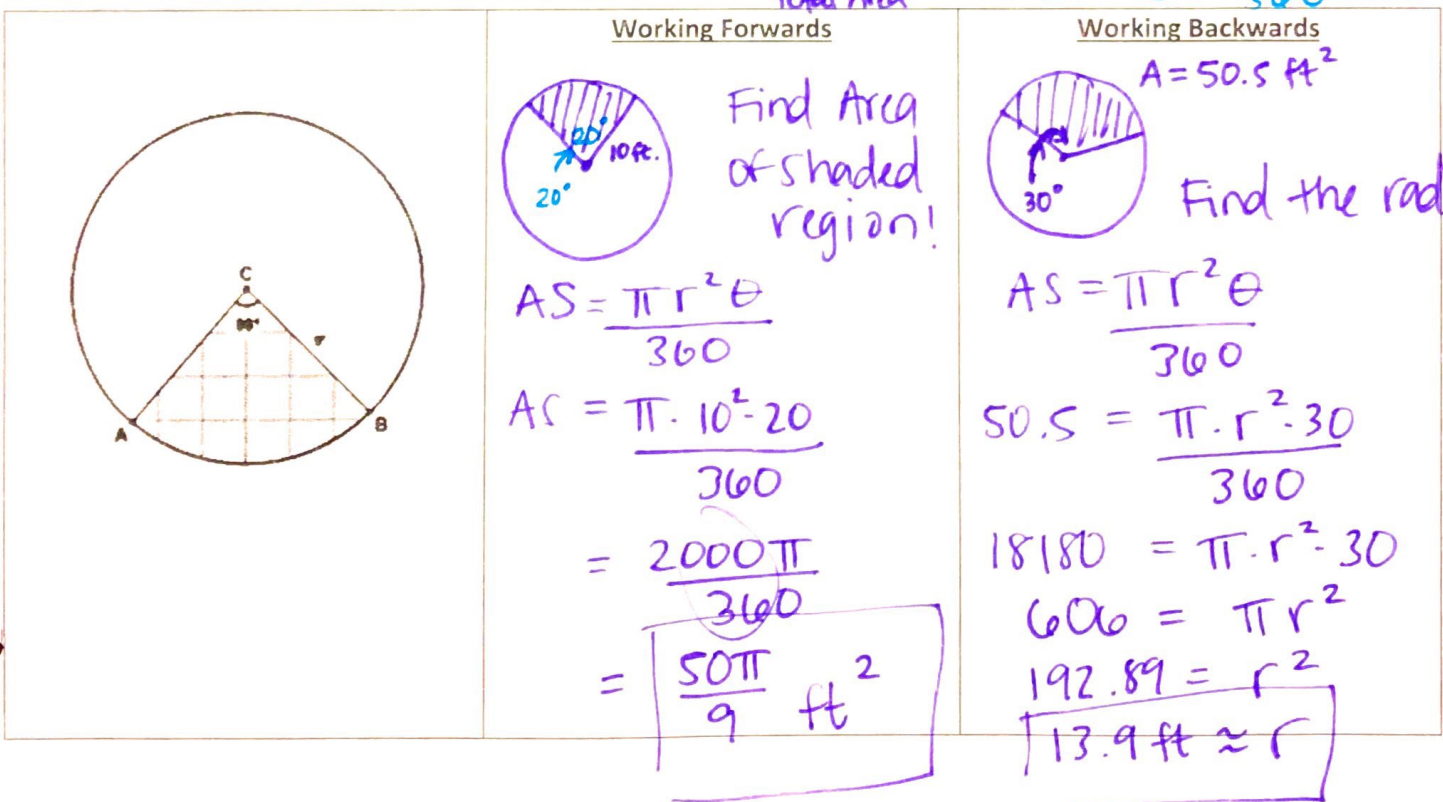 Total Area
360
C
r
A
B
Working Forwards
10ft.
20°
Find Area
of shaded
region!
AS = πr²θ
360
AS = π · 10² · 20
360
= 2000π
360
= 50π
9 ft²
Working Backwards
A = 50.5 ft²
30°
Find the rad
AS = πr²θ
360
50.5 = π · r² · 30
360
18180 = π · r² · 30
606 = πr²
192.89 = r²
13.9 ft ≈ r